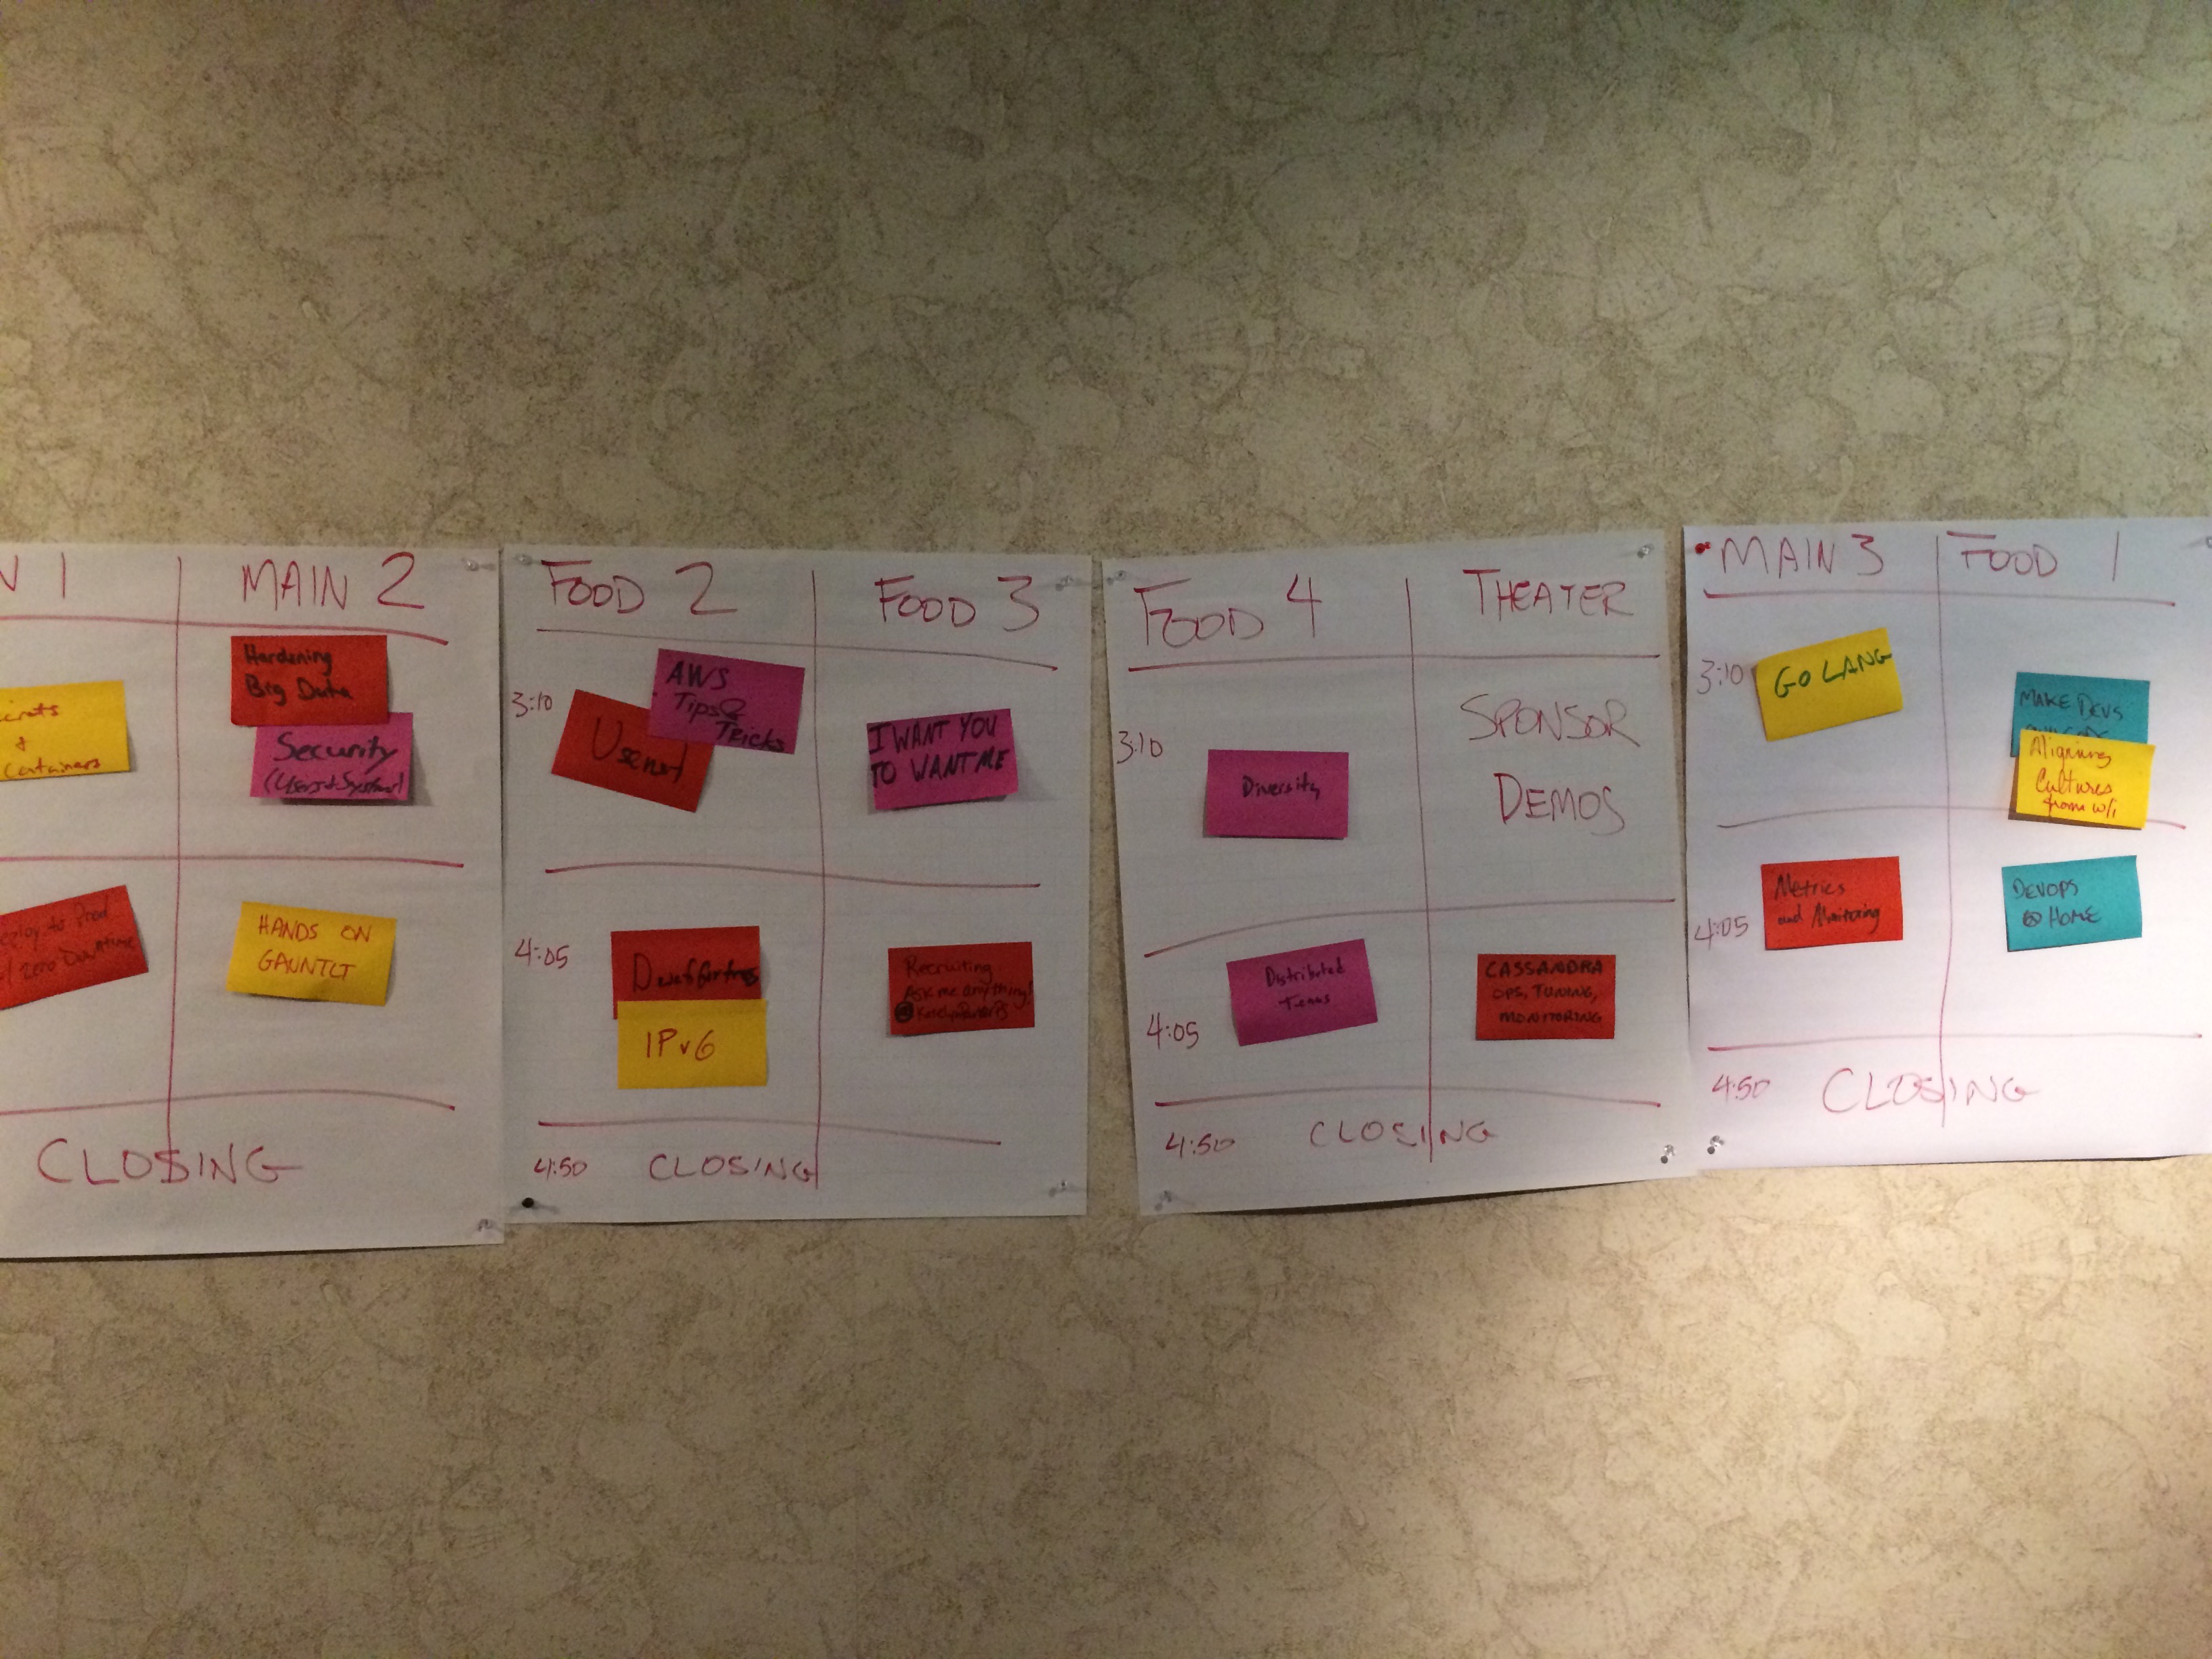 N 1
MAIN 2
Hardening
Big Data
Security
(Users+System)
+
Containers
to Prod
w/ Zero Downtime
HANDS ON
GAUNTLT
CLOSING
FOOD 2
FOOD 3
3:10
Usenet
AWS
Tips &
Tricks
I WANT YOU
TO WANT ME
4:05
IPv6
Recruiting
Ask me anything!
4:50
CLOSING
FOOD 4
THEATER
3:10
Diversity
SPONSOR
DEMOS
4:05
Distributed
Teams
CASSANDRA
OPS, TUNING,
MONITORING
4:50
CLOSING
MAIN 3
FOOD 1
3:10
GO LANG
MAKE DEVS
Aligning
Cultures
from w/i
4:05
Metrics
and Monitoring
DEVOPS
@ HOME
4:50
CLOSING